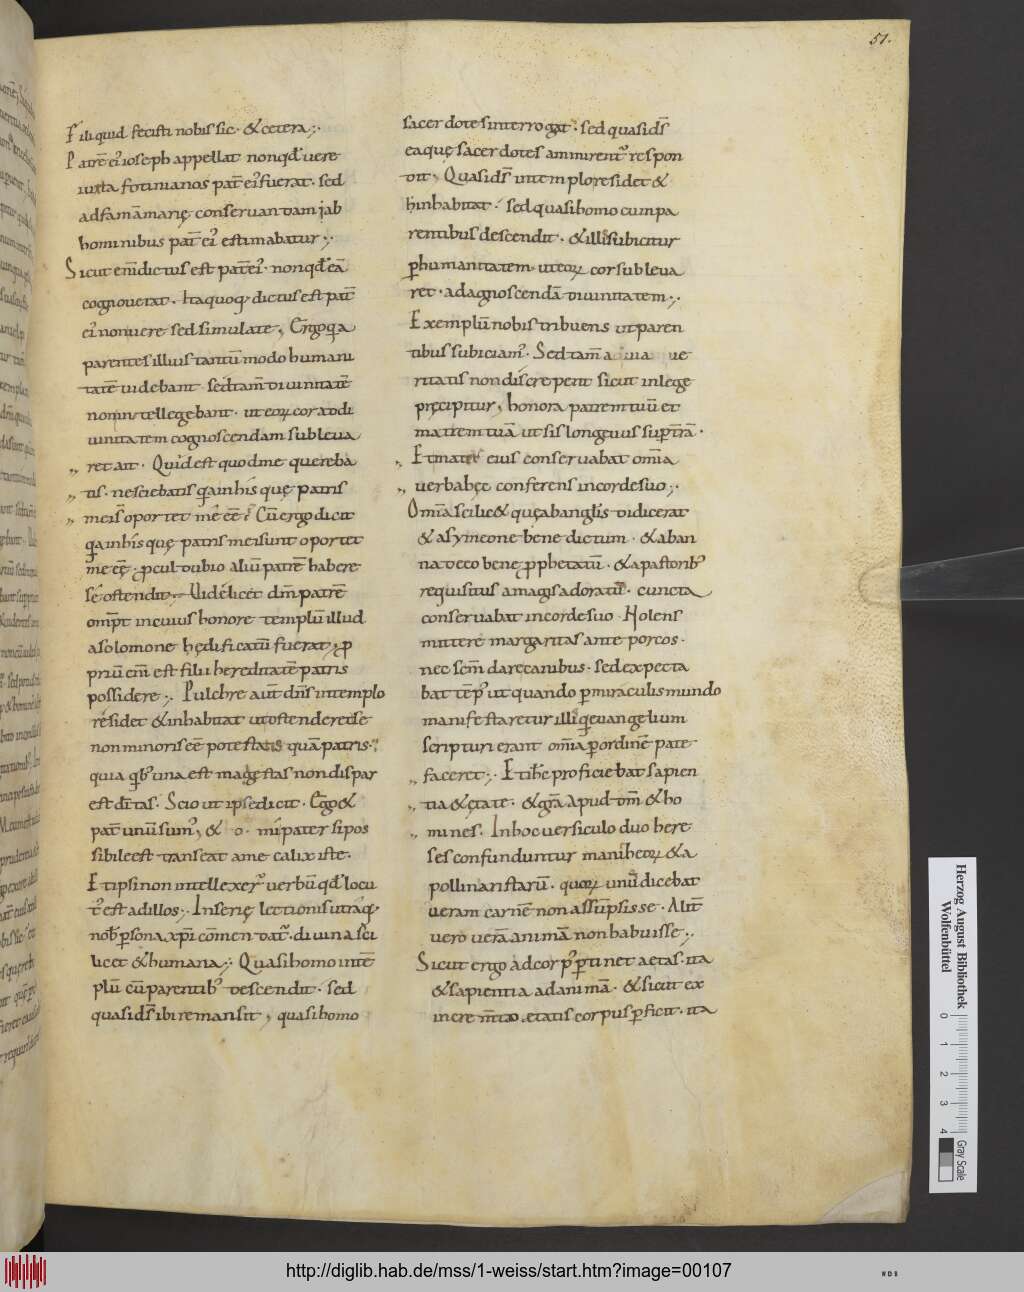 51.
Fili quid fecisti nobis sic· & cetera;·
Patrē ei᾽ ioseph appellat nonqđ uere
iuxta fotinianos pat̄ ei᾽ fuerat· sed
adfamā marię conseruandam / ab
hominibus pat̄ ei᾽ estimabatur;·
Sicut eni dictus est pat̄ ei᾽· nonqđ eā
cognouerat· Itaquoq; dictus est pat̄
ei᾽ nonuere sed simulate, Ergo qa
parentes illius tantū modo humani
tatē uidebant· sed tam̄ diuinitatē
nonintellegebant· ut eoꝝ cor addi
uinitatem cognoscendam subleua
ret ait· Quid est quod me quereba
tis· nesciebatis qa inhis quę patris
mei s̄ oportet mē ee᾽? Cū ergo dicit
qa inhis quę patris mei sunt oportet
me eē᾽· procul dubio aliū patrē habere
sē ostendit;· Videlicet dm̄ patrē
omp̄t incuius honore templū illud
a solomone hędificatū fuerat; ꝓ
priū em̄ est filii hereditatē patris
possidere;· Pulchre aut̄ dn̄s intemplo
residet & inhabitat utostenderet se
non minoris eē potestatis quā patris·
quia qb᾽ una est magestas non dispar
est dītas· Scio ut ipse dicit· Ego &
pat̄ unū sum᾽, & o· mi pater si pos
sibile est transeat a me calix iste·
Et ipsi non intellexer᾽ uerbū qđ locu
t᾽ est ad illos;· In serię lectionis utraq;
nob̄ persona xp̄i cōmendat᾽· diuina sci
licet & humana;· Quasi homo intē
plū cū parentib᾽ descendit· sed
quasi ds̄ ibi remansit, quasi homo
sacerdotes interrogat· sed quasi ds̄
eaquę sacerdotes ammirent᾽ respon
dit, Quasi ds̄ in templo residet &
hinhabitat· sed quasi homo cumpa
rentibus descendit· & illis subicitur
ꝑ humanitatem· ut eoꝝ cor subleua
ret· ad agnoscendā diuinitatem;·
Exemplū nobis tribuens ut paren
tibus subiciam᾽· Sed tam̄ a ue
ritatis non discrepent sicut in lege
pręcipitur, honora patrem tuū et
matrem tuā ut sis longeuus sup̄ t̄rā·
Et mater eius conseruabat om̄ia
uerba hęc conferens incorde suo;·
Om̄ia scilic& quę ab anglis didicerat
& a symeone benedictum· & ab an
na uero bene ꝓphetatū· & a pastorib᾽
requisitus a magis adoratū· cuncta
conseruabat incorde suo Nolens
mittere margaritas ante porcos·
nec sem̄ dare canibus· sed expecta
bat tēp᾽ ut quando ꝑ miraculis mundo
manifestaretur illi q euangelium
scripturi erant om̄ia ꝑ ordinē pate
faceret;· Et ih̄c proficiebat sapien
tia & ętate· & gr̄a apud dm̄ & ho
mines· In hoc uersiculo duo here
ses confunduntur maniheoꝝ & a
pollinaristarū· quoꝝ unū dicebat
ueram carnē non assūpsisse· Alit̄
uero uerā animā non habuisse;·
Sicut ergo ad corp᾽ pertinet aetas· ita
& sapientia ad animā· & sicut ex
incrementdo etatis corpus ꝓficit· ita
Herzog August Bibliothek
Wolfenbüttel
0 1 2 3 4
Gray Scale
http://diglib.hab.de/mss/1-weiss/start.htm?image=00107